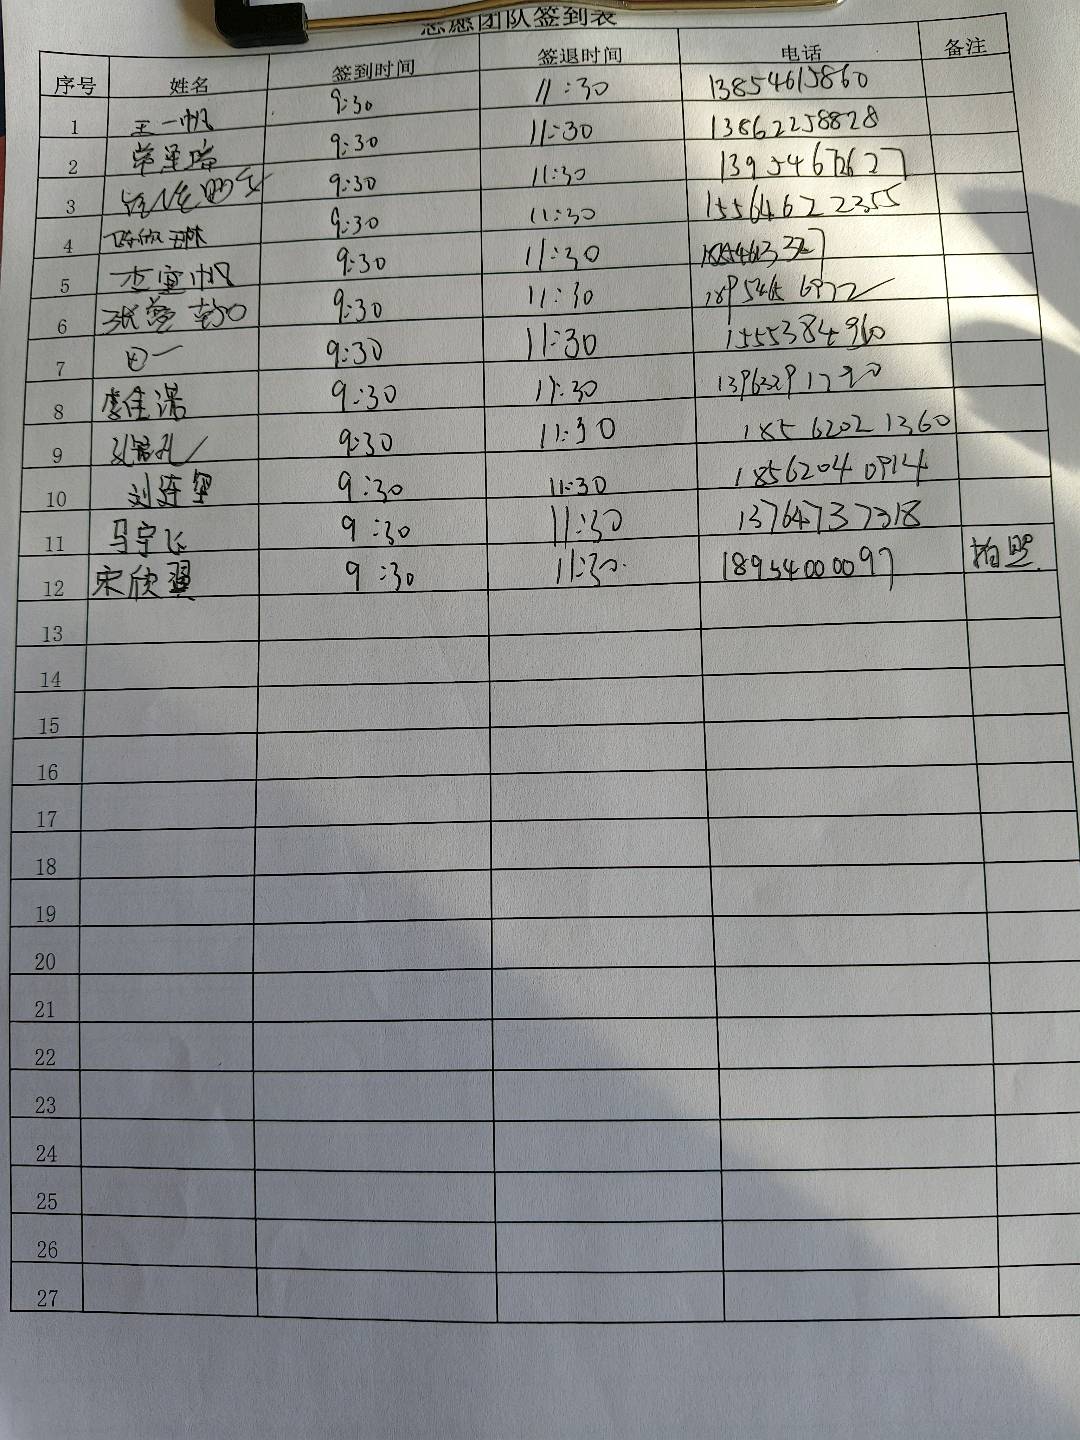 志愿团队签到表
序号 姓名 签到时间 签退时间 电话 备注
1 王一帆 9:30 11:30 13854615860
2 9:30 11:30 13862258828
3 9:30 11:30 13954672627
4 陈欣琳 9:30 11:30 15564622355
5 李宜帆 9:30 11:30
6 张蓥 9:30 11:30
7 田一 9:30 11:30 1555384960
8 李佳浩 9:30 11:30
9 9:30 11:30 18562021360
10 刘连军 9:30 11:30 18562040914
11 马宇飞 9:30 11:30 13764737318
12 宋欣翼 9:30 11:30 18954000097 拍照
13
14
15
16
17
18
19
20
21
22
23
24
25
26
27